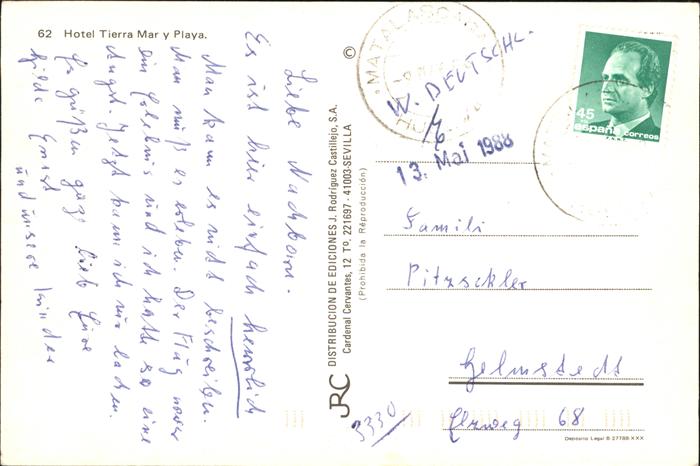 62 Hotel Tierra Mar y Playa.
Liebe Nachbarn.
Es ist hier einfach herrlich
Man kann es nicht beschreiben.
Man muß es erleben. Der Flug war
ein Erlebnis und ich hatte so eine
Angst. Jetzt kann ich nur lachen.
Es grüßen ganz lieb Eure
Hilde Ernst
und unsere Kinder
©
JRC DISTRIBUCION DE EDICIONES J. Rodríguez Castillejo, S.A.
Cardenal Cervantes, 12 Tº. 221697 - 41003-SEVILLA
(Prohibida la Reproducción)
MATALASCAÑAS
W. DEUTSCHL.
13. Mai 1988
45
españa correos
Famili
Pitzschler
Helmstedt
3330
Elzweg 68
Depósito Legal B 27788-XXX